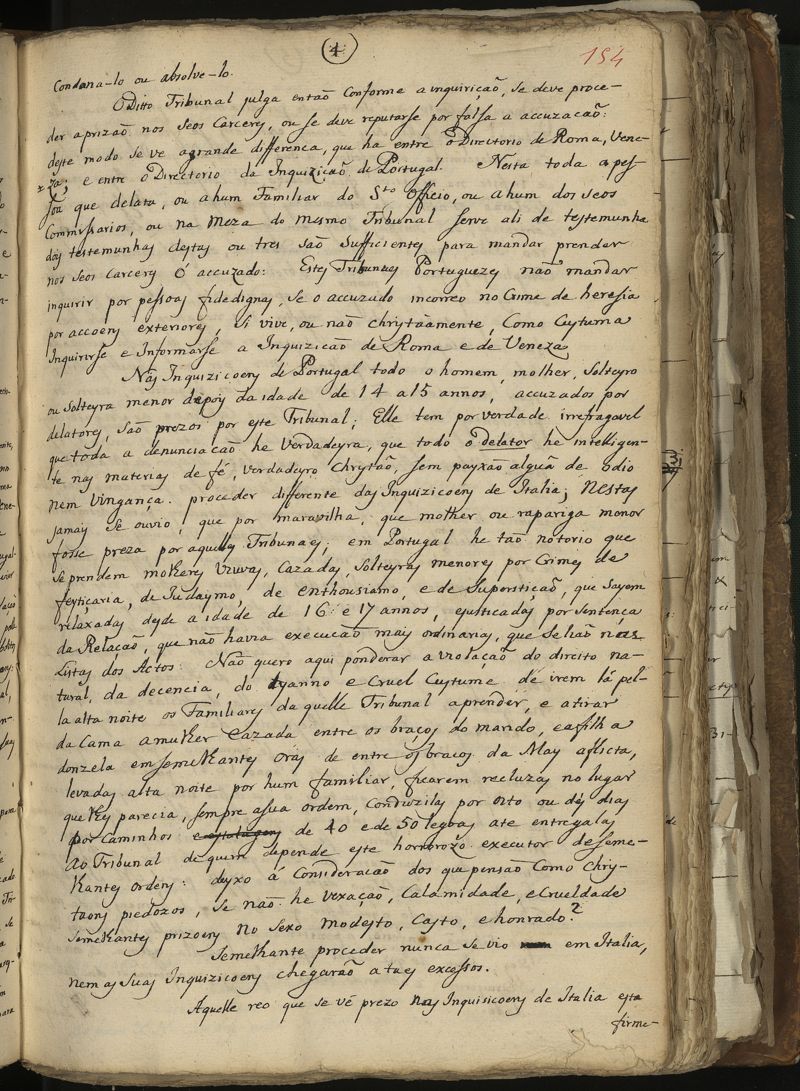 4
154
Condana-lo ou absolve-lo.
O Ditto Tribunal julga entaõ Conforme a inquiriçaõ, se deve proce-
der a prizaõ nos seos Carcerej, ou se deve reputarse por falsa a accuzacaõ:
deste modo se ve a grande differenca, que ha entre o Directorio de Roma, Vene-
za; e entre o Directorio da Inquizicaõ de Portugal. Nesta toda a pes-
soa que delata, ou a hum Familiar do Sto Officio, ou a hum dos seos
Commissarios, ou na Meza do mesmo Tribunal serve ali de testemunha
doij testemunhaj destaj ou tres saõ sufficientej para mandar prender
nos seos Carcerej o accuzado: Estej Tribunaej Portuguezej naõ mandaõ
inquirir por pessoaj fidedignaj, se o accuzado incorreo no Crime de heresia
por accoenj exteriorej, si vive, ou naõ chrystaãmente, Como Custuma
Inquirirse e Informarse a Inquizicaõ de Roma e de Veneza
Naj Inquizicoenj de Portugal todo o homem, molher, Solteyro
ou Solteyra menor depoij da idade de 14 a 15 annos, accuzados por
delatorej, saõ prezos por este Tribunal; Elle tem por verdade irrefragavel
que toda a denunciacaõ he verdadeyra, que todo o delator he intelligen-
te naj materiaj de fé, verdadeyro Chrystaõ, sem payxaõ alguã de odio
nem vingança. proceder differente daj Inquizicoenj de Italia; Nestaj
jamaij se ouvio, que por maravilha, que molher ou rapariga menor
fosse preza por aquellej Tribunaej; em Portugal he taõ notorio que
se prendem molherej viuvaj, Cazadaj, Solteyraj menorej por Crimej de
feytiçaria, de Judaymo, de enthousiasmo, e de Superstiçaõ, que sayem
relaxadaj desde a idade de 16 e 17 annos, e justicadaj por sentença
da Relaçaõ, que naõ havia execucaõ maij ordinaria, que se liaõ nas
Listaj dos Actos: Naõ quero aqui ponderar a violaçaõ do direito na-
tural, da decencia, do tyranno e Cruel Custume de irem lá pel-
la alta noite os Familiarej daquelle Tribunal a prender, e a tirar
da Cama a mulher Cazada entre os braços do marido, e a filha
donzela em semelhantej oraj de entre oj bracoj da May aflicta,
levadaj alta noite por hum familiar, ficarem recluzaj no lugar
que lhej parecia, sempre a sua ordem, Conduzilaj por oito ou déj diaj
por Caminhos de 40 e de 50 legoaj ate entregalaj
ao Tribunal de quem depende este horrorozo executor de seme-
lhantej ordenj: deyxo á Consideracaõ dos que pensaõ Como Chry-
taonj piedozos, se naõ he vexaçaõ, Calamidade, e Crueldade
semelhantej prizoenj no sexo modesto, Casto, e honrado?
Semelhante proceder nunca se vio em Italia,
nem aj Suaj Inquizicoenj chegaraõ a taej excessos.
Aquelle reo que se vé prezo naj Inquisicoenj de Italia esta
firme-